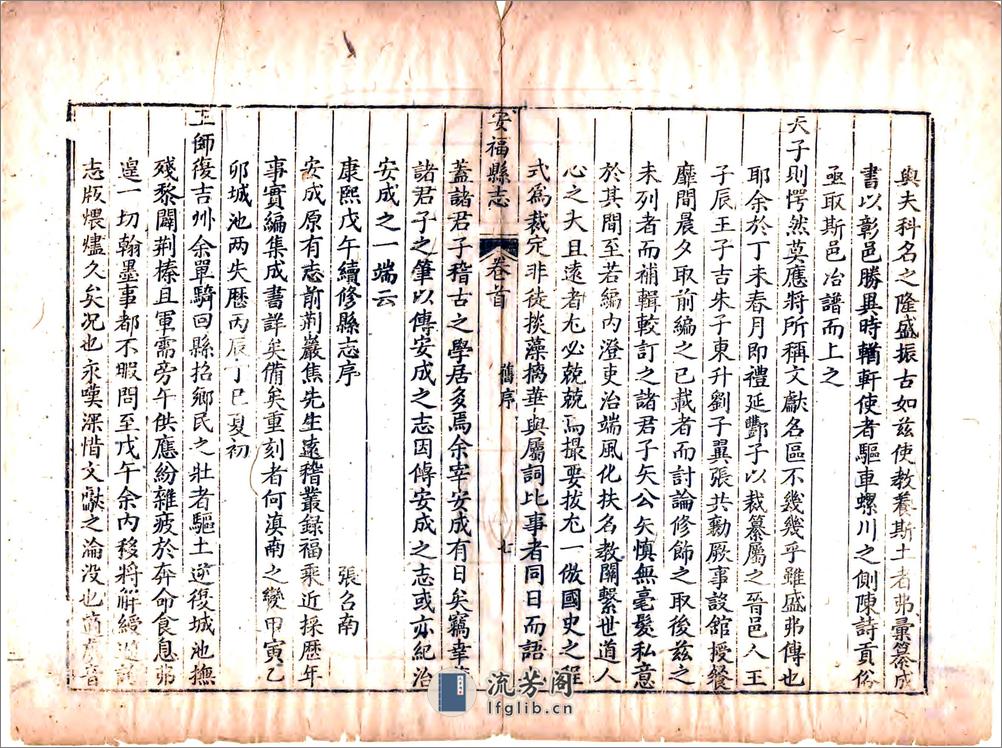 與夫科名之隆盛振古如茲使教養斯土者弗彙纂成
書以彰邑勝異時輶軒使者驅車螺川之側陳詩貢俗
亟取斯邑冶譜而上之
天子則愕然莫應將所稱文獻名區不幾幾乎雖盛弗傳也
耶余於丁未春月即禮延酆子以裁纂屬之晉邑人王
子辰王子吉朱子東升劉子翼張共勷厥事設館授餐
靡間晨夕取前編之已載者而討論修飾之取後茲之
未列者而補輯較訂之諸君子矢公矢慎無毫髮私意
於其間至若編內澄吏治端風化扶名教關繫世道人
心之大且遠者尤必兢兢焉撮要拔尤一倣國史之程
式為裁定非徒掞藻摛華與屬詞比事者同日而語
蓋諸君子稽古之學居多焉余宰安成有日矣竊幸
諸君子之筆以傳安成之志因傳安成之志或亦紀治
安成之一端云
康熙戊午續修縣志序
張召南
安成原有志前荊巖焦先生遠稽叢録福乘近採歷年
事實編集成書詳矣備矣重刻者何滇南之變甲寅乙
卯城池两失歷丙辰丁巳夏初
王師復吉州余單騎回縣招鄉民之壯者驅土逆復城池撫
殘黎闢荊榛且軍需旁午供應紛雜疲於奔命食息弗
遑一切翰墨事都不暇問至戊午余內移將解綬過
志版煨燼久矣况也永嘆深惜文獻之淪没也
安福縣志
卷首
舊序
七
流芳阁
lfglib.cn